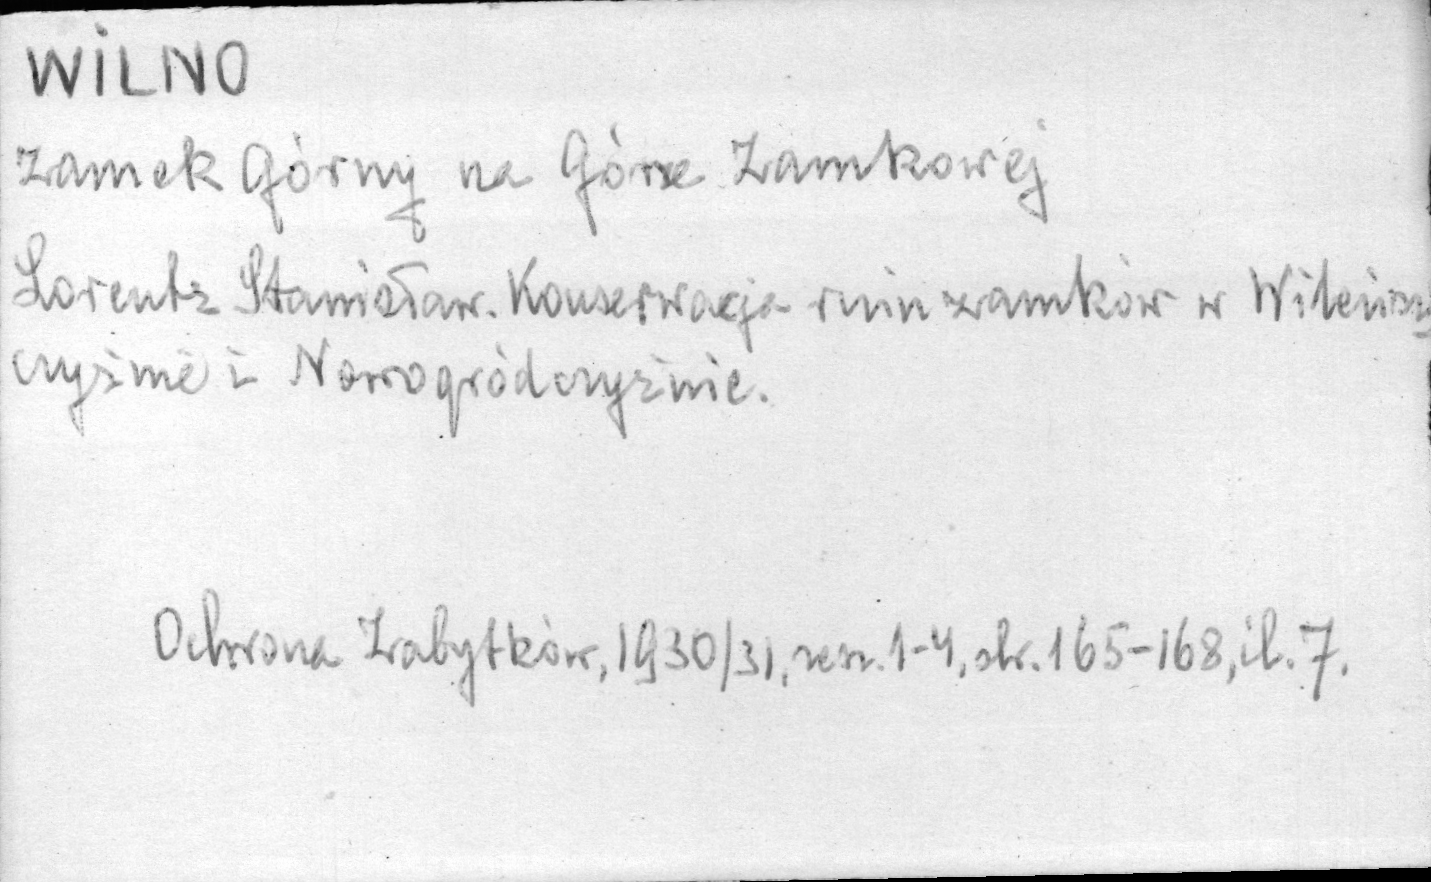 WILNO
Zamek Górny na Górze Zamkowej
Lorentz Stanisław. Konserwacja ruin zamków w Wileńsz
czyźnie i Nowogródczyźnie.
Ochrona Zabytków, 1930/31, zesz. 1-4, str. 165-168, il. 7.